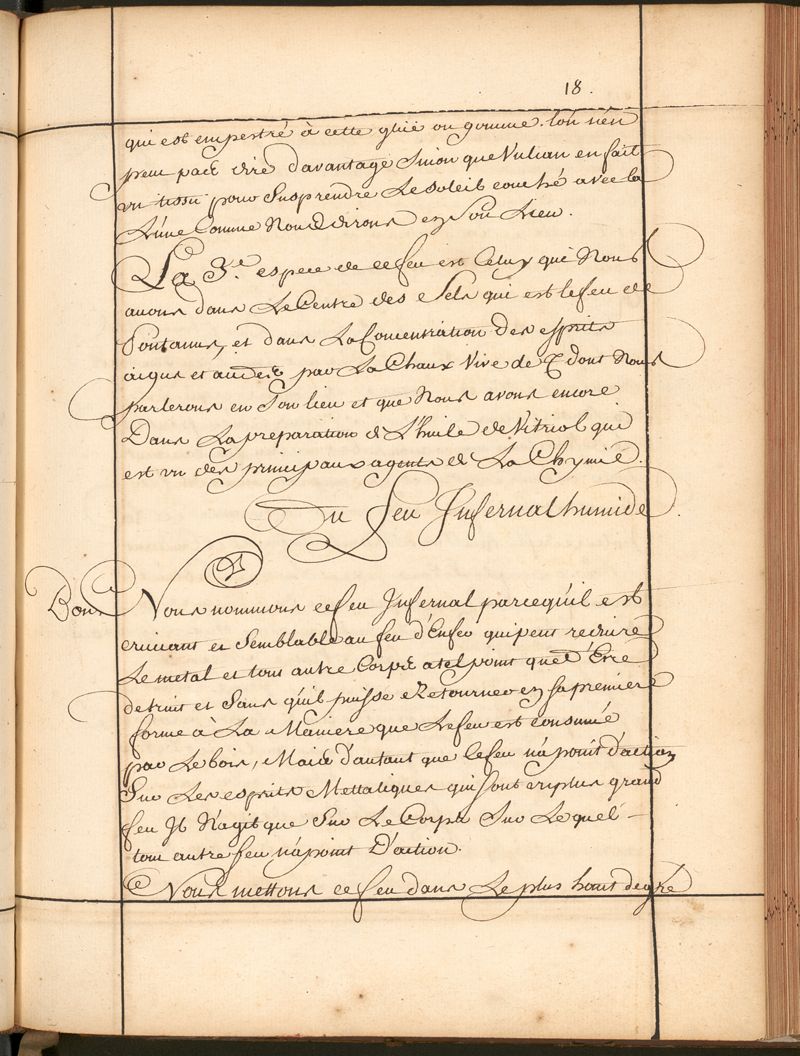 18.
qui est empestré à cette glüe ou gomme. l'on n'en
peut pas dire davantage Sinon que Vulcan en fait
un tissu pour Susprendre Le soleil couché avec la
Lune Comme Nous dirons en Son Lieu.
La 3.e espece de ce feu est Celuy que Nous
avons dans Le Centre des Sels qui est le feu de
Pontanus, et dans La Concentration des esprits
aigus et acides par La Chaux Vive de dont Nous
parlerons en Son lieu et que Nous avons encore
Dans La preparation de L'huile de Vitriol qui
est un des principaux agents de La Chymie.
Du feu Infernal humide
Bon Nous nommons ce feu Infernal parcequ'il est
cruciant et Semblable au feu d'Enfer qui peut reduire
Le metal et tout autre Corps a tel point que d'Etre
detruit et Sans qu'il puisse Retourner en sa premiere
forme à La Maniere que Le feu est consumé
par Le bois, Mais d'autant que le feu n'a point d'action
Sur Les esprits Mettaliques qui sont un plus grand
feu Il N'agit que Sur Le Corps Sur Lequel
tout autre feu n'a point D'action.
Nous mettons ce feu dans Le plus haut degré